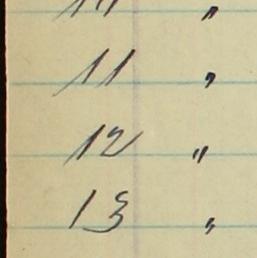 "
11 "
12 "
13 "